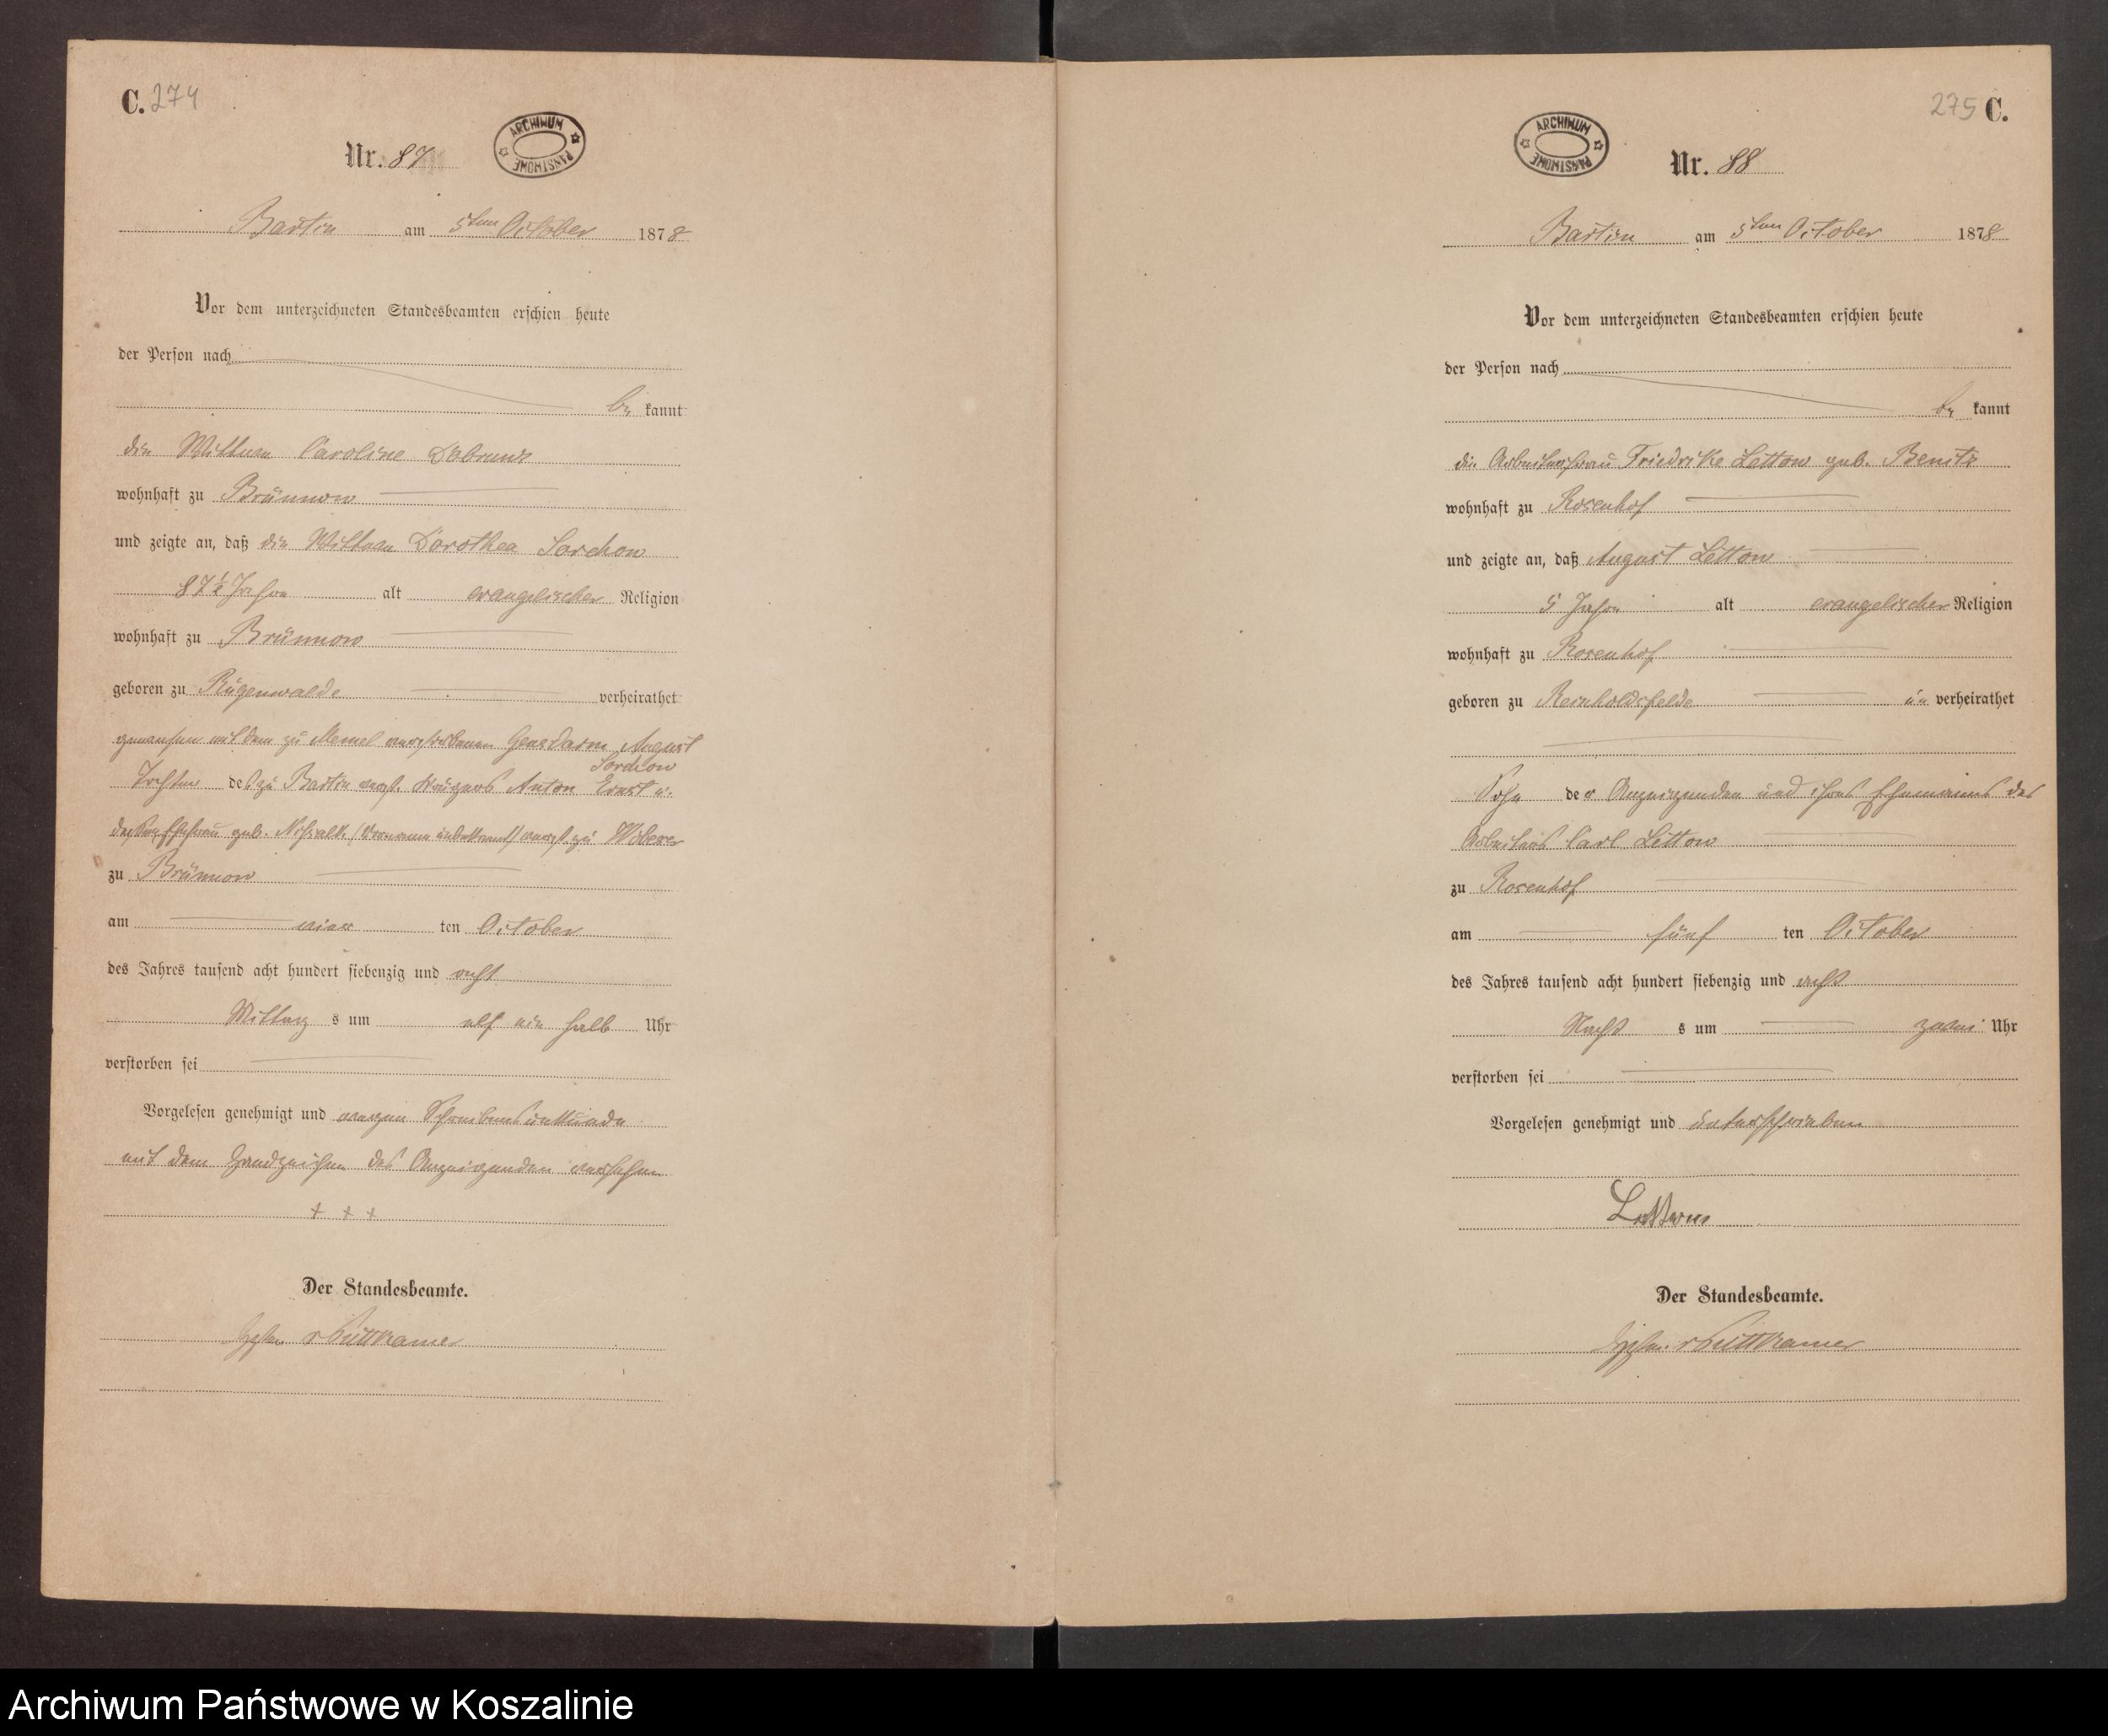 C. 274
ARCHIWUM PAŃSTWOWE
Nr. 87
Bartin am 5ten October 1878
Vor dem unterzeichneten Standesbeamten erschien heute
der Person nach
be kannt
die Wittwe Caroline
wohnhaft zu Brünnow
und zeigte an, daß die Wittwe Dorothea Sorchow
87½ Jahre alt evangelischer Religion
wohnhaft zu Brünnow
geboren zu Rügenwalde verheirathet
gewesen mit dem zu Memel verstorbenen Gensdarm August
Sorchow
Tochter des zu Bartin verst. Krügers Anton Ernst u.
dessen Ehefrau geb. (Vorname unbekannt) verst. zu
zu Brünnow
am vier ten October
des Jahres tausend acht hundert siebenzig und acht
Mittag s um elf ein halb Uhr
verstorben sei
Vorgelesen genehmigt und wegen Schreibensunkunde
mit dem Handzeichen des Anzeigenden versehen
+ + +
Der Standesbeamte.
v Puttkamer
275 C.
ARCHIWUM PAŃSTWOWE
Nr. 88
Bartin am 5ten October 1878
Vor dem unterzeichneten Standesbeamten erschien heute
der Person nach
be kannt
die Arbeiterfrau Friedrike Lettow geb. Benitz
wohnhaft zu Rosenhof
und zeigte an, daß August Lettow
5 Jahre alt evangelischer Religion
wohnhaft zu Rosenhof
geboren zu Reinholdsfelde un verheirathet
Sohn der Anzeigenden und ihres Ehemanns des
Arbeiters Carl Lettow
zu Rosenhof
am fünf ten October
des Jahres tausend acht hundert siebenzig und acht
Nacht s um zwei Uhr
verstorben sei
Vorgelesen genehmigt und unterschrieben
Lettow
Der Standesbeamte.
v Puttkamer
Archiwum Państwowe w Koszalinie